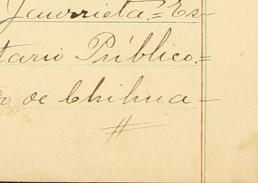 Jaurrieta.=Es-
tario Público.=
de Chihua-
#